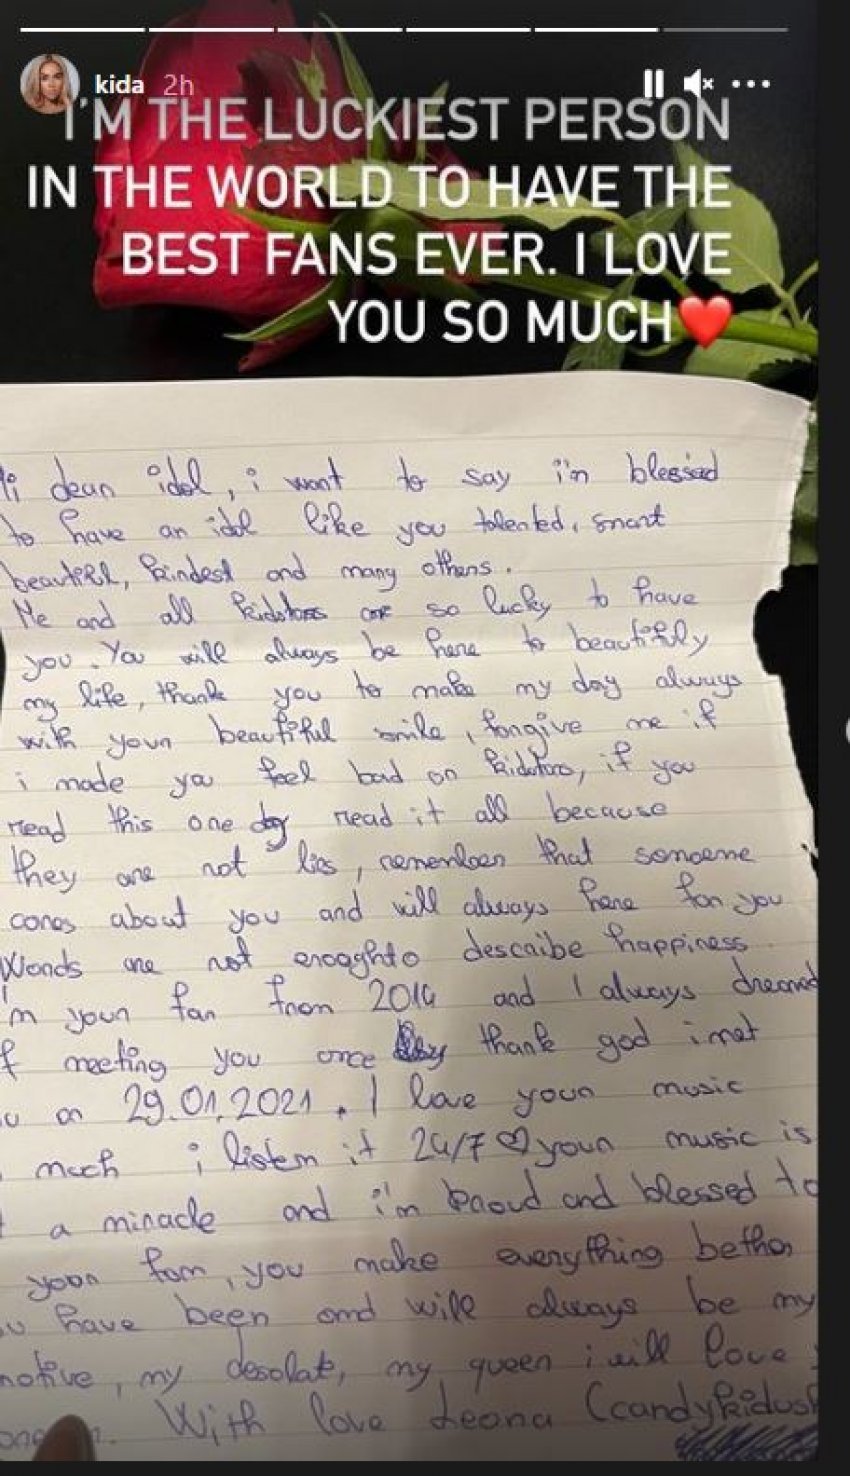 kida 2h
I'M THE LUCKIEST PERSON
IN THE WORLD TO HAVE THE
BEST FANS EVER. I LOVE
YOU SO MUCH❤️
Hi dear idol, i want to say i'm blessed
to have an idol like you talented, smart
beautiful, kindest and many others.
Me and all are so lucky to have
you. You will always be here to beautifuly
my life, thank you to make my day always
with your beautiful smile, forgive me if
i made you feel bad on if you
read this one day read it all because
they are not lies, remember that someone
cares about you and will always here for you
Words are not to describe happiness
I'm your fan from 2014 and I always dreamed
of meeting you once thank god i met
u on 29.01.2021. I love your music
much i listen it 24/7 ♡ your music is
a miracle and i'm proud and blessed to
your fan, you make everything
u have been and will always be my
motive, my my queen i will love
With love Leona